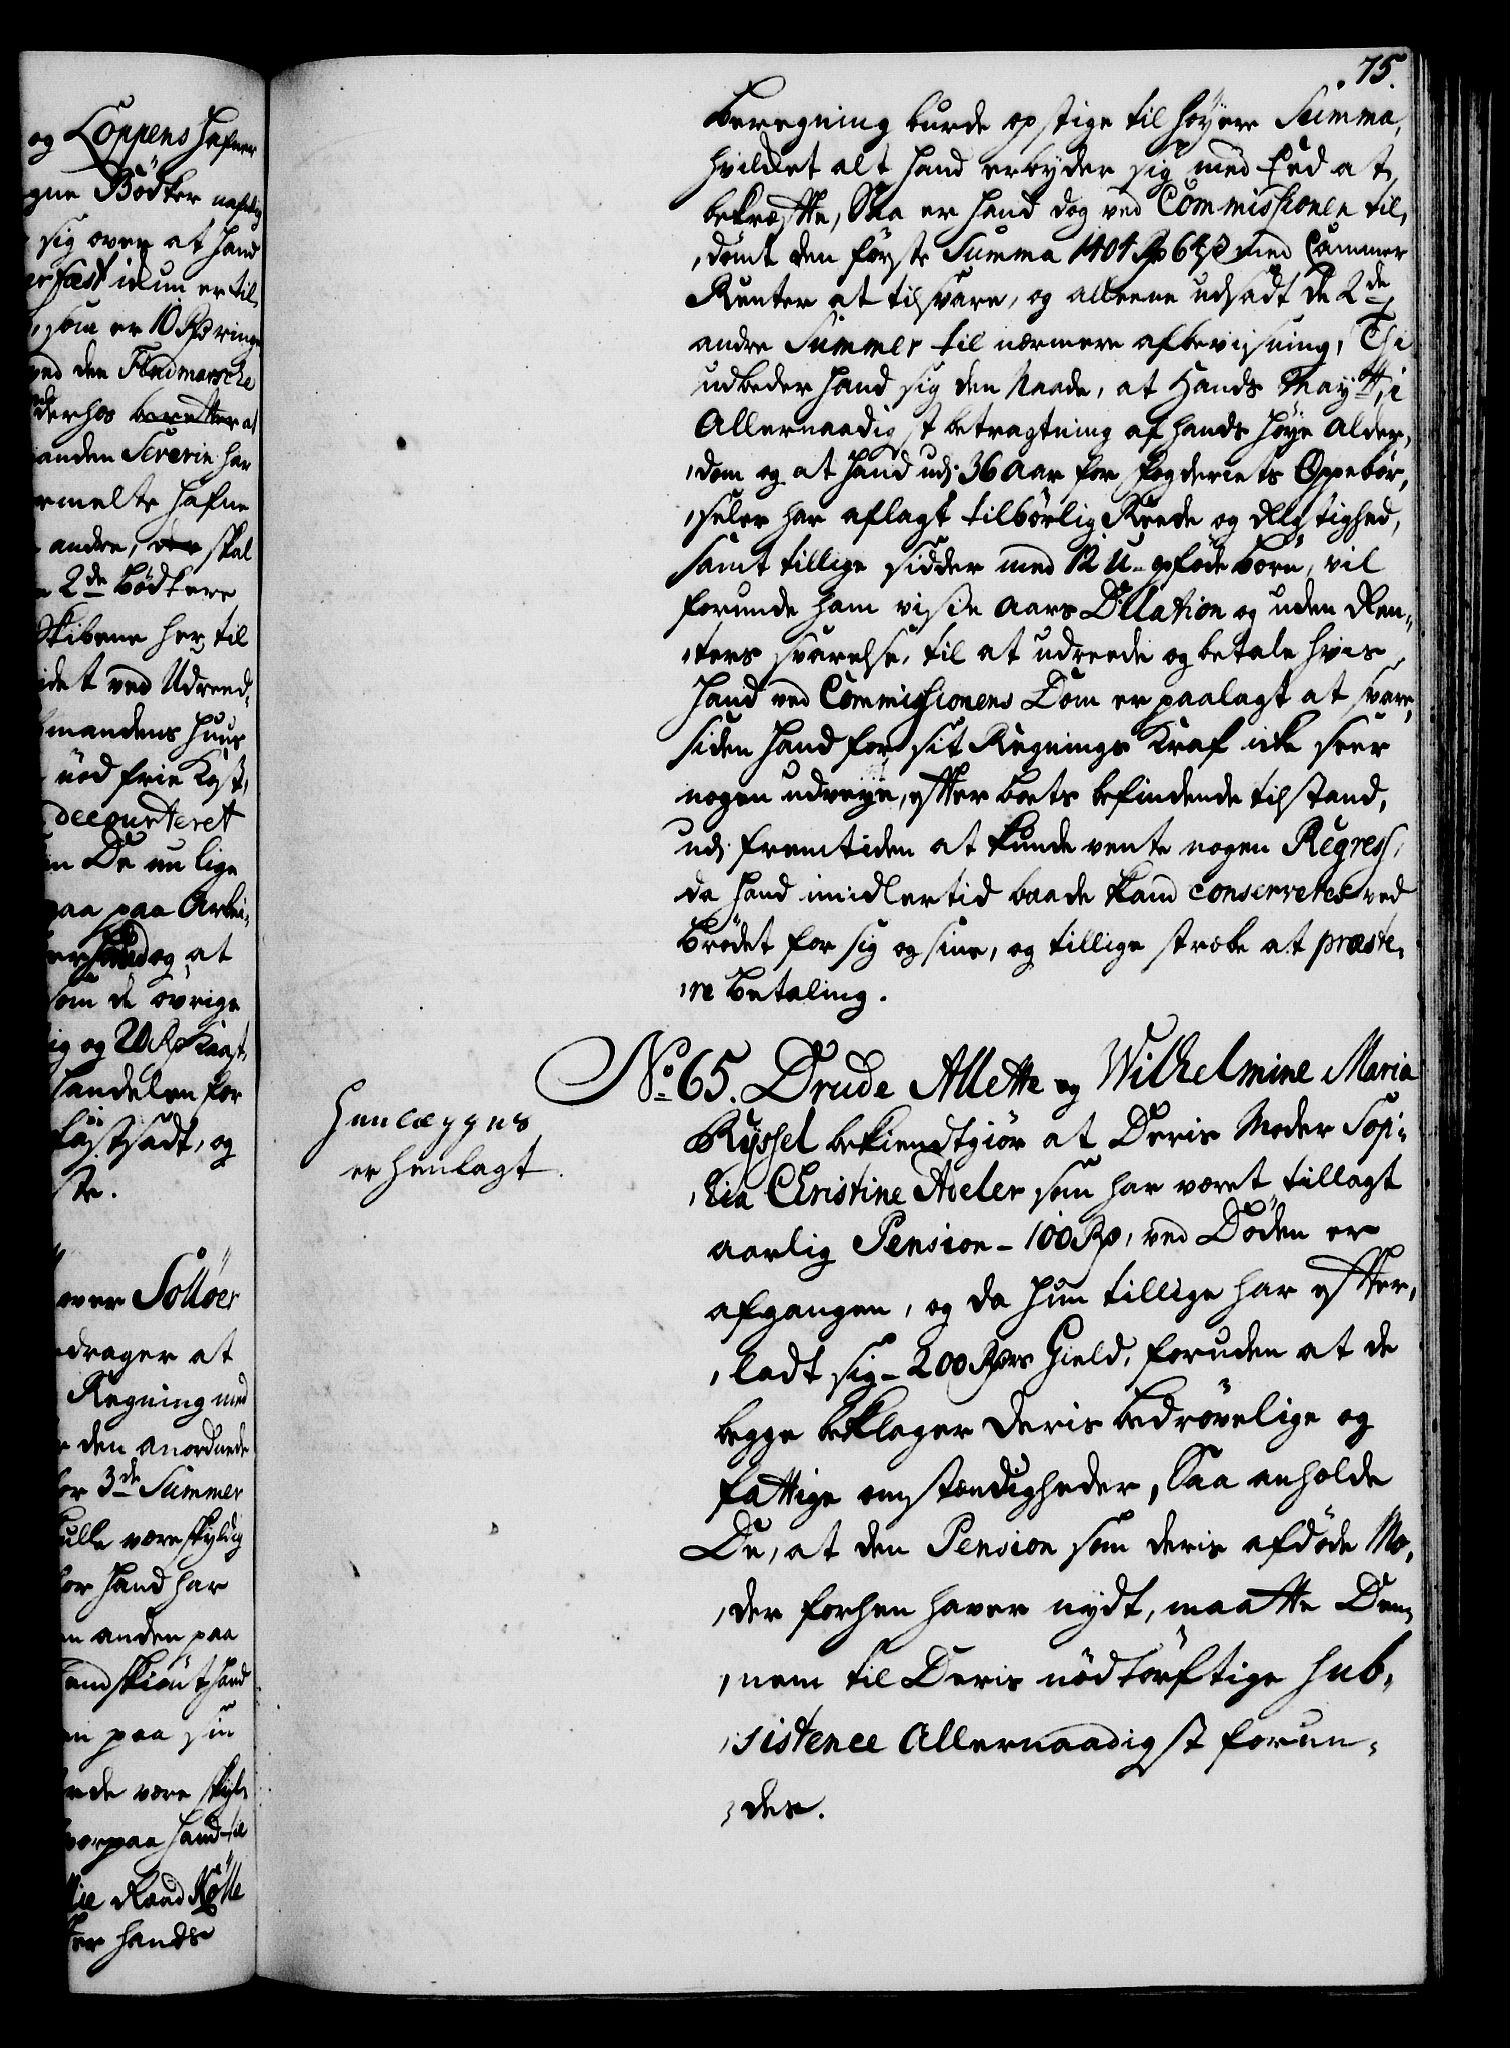 75.
beregning burde opstige til höyere Summa,
hvilcket alt hand erbyder sig med Eed at
bekræffte, Saa er hand dog ved Commissionen til,
,dömt den förste Summa 1404 Rp 64 s med Cammer
Renter at tilsvare, og alleene udsadt de 2de
andre Summer til nærmere afbevisning, Thi
udbeder hand sig den Naade, at Hands Maytt, i
Allernaadigst betragtning af hands høye Alder,
,dom og at hand udj 36 Aar for Fogderiets Oppebör,
,seler har aflagt tilbörlig Reede og Rigtighed,
samt tillige sidder med 12 U-opföde börn, vil
forunde ham visse Aars Dilation og uden Ren,
,ters svarelse, til at udreede og betale hvis
hand ved Commissionens Dom er paalagt at svare,
siden hand for sit Regnings Kraf icke seer
nogen udveye, effter boets befindende tilstand,
udj fremtiden at kunde vente nogen Regress,
da hand imidlertid baade kand conserveres ved
brödet for sig og sine, og tillige stræbe at præste,
,re betaling.
No 65. Drude Allette og Wilhelmine Maria
Ryssel bekiendtgiör at Deris Moder Sop,
,hia Christine Adeler som har været tillagt
aarlig Pension - 100 Rp, ved Döden er
afgangen, og da hun tillige har effter,
,ladt sig - 200 Rprs Gield, foruden at de
begge beklager deris bedrövelige og
fattige omstændigheder, Saa anholde
De, at den Pension som deris afdöde Mo,
,der forhen haver nydt, maatte Dem,
,nem til Deris nödtörftige sub,
,sistence Allernaadigst forun,
,des.
Henlægges
er henlagt.
og Loppens Hafner
Bödker
sig over at hand
som er 10 Rp ringe
ved den Findmarsche
derhos beretter at
anden Severin har
andre, der skal
2de bödkere
Skibene her til
idet ved Udreed,
mandens huus
nöd frie Kost,
decourteret
De nu lige
paa paa Arbei,
dog at
som de övrige
og 20 Rp Kaast
handelen for
satt, og
over Sollöer
drager at
Regning med
den anordnede
for 3de Summer
kulle være skyldig
for hand har
en anden paa
endskiönt hand
en paa sin
de være skyl,
vorpaa hand til
er hands